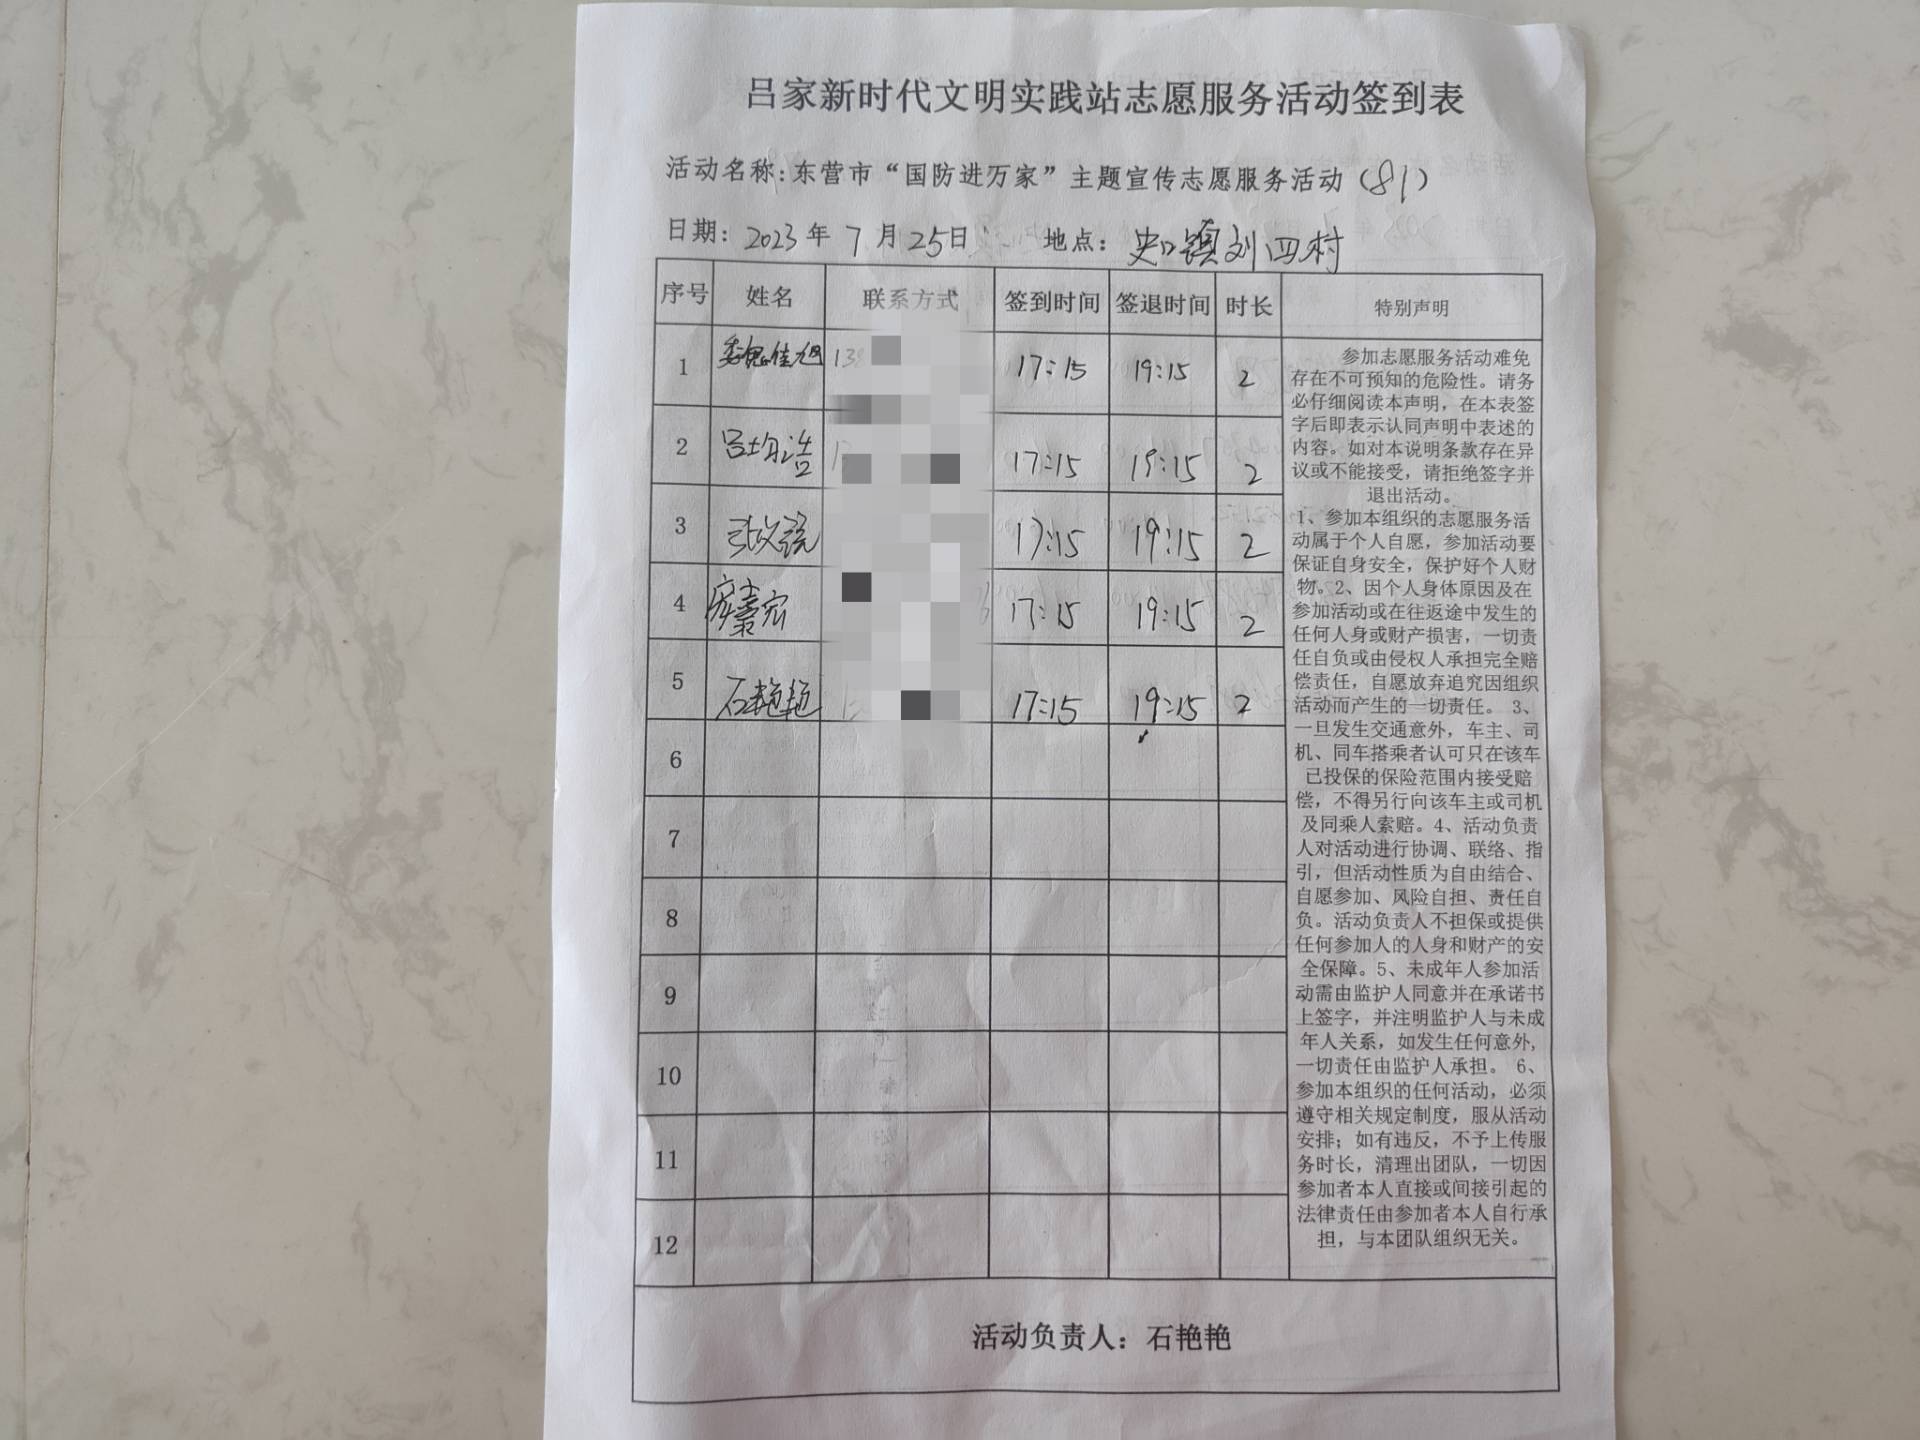 吕家新时代文明实践站志愿服务活动签到表
活动名称:东营市“国防进万家”主题宣传志愿服务活动(81)
日期: 2023年 7月25日 地点: 史口镇刘四村
序号 姓名 联系方式 签到时间 签退时间 时长 特别声明
1 17:15 19:15 2
2 吕均浩 17:15 19:15 2
3 17:15 19:15 2
4 17:15 19:15 2
5 石艳艳 17:15 19:15 2
6
7
8
9
10
11
12
参加志愿服务活动难免
存在不可预知的危险性。请务
必仔细阅读本声明,在本表签
字后即表示认同声明中表述的
内容。如对本说明条款存在异
议或不能接受,请拒绝签字并
退出活动。
1、参加本组织的志愿服务活
动属于个人自愿,参加活动要
保证自身安全,保护好个人财
物。2、因个人身体原因及在
参加活动或在往返途中发生的
任何人身或财产损害,一切责
任自负或由侵权人承担完全赔
偿责任,自愿放弃追究因组织
活动而产生的一切责任。 3、
一旦发生交通意外,车主、司
机、同车搭乘者认可只在该车
已投保的保险范围内接受赔
偿,不得另行向该车主或司机
及同乘人索赔。4、活动负责
人对活动进行协调、联络、指
引,但活动性质为自由结合、
自愿参加、风险自担、责任自
负。活动负责人不担保或提供
任何参加人的人身和财产的安
全保障。5、未成年人参加活
动需由监护人同意并在承诺书
上签字,并注明监护人与未成
年人关系,如发生任何意外,
一切责任由监护人承担。 6、
参加本组织的任何活动,必须
遵守相关规定制度,服从活动
安排;如有违反,不予上传服
务时长,清理出团队,一切因
参加者本人直接或间接引起的
法律责任由参加者本人自行承
担,与本团队组织无关。
活动负责人:石艳艳